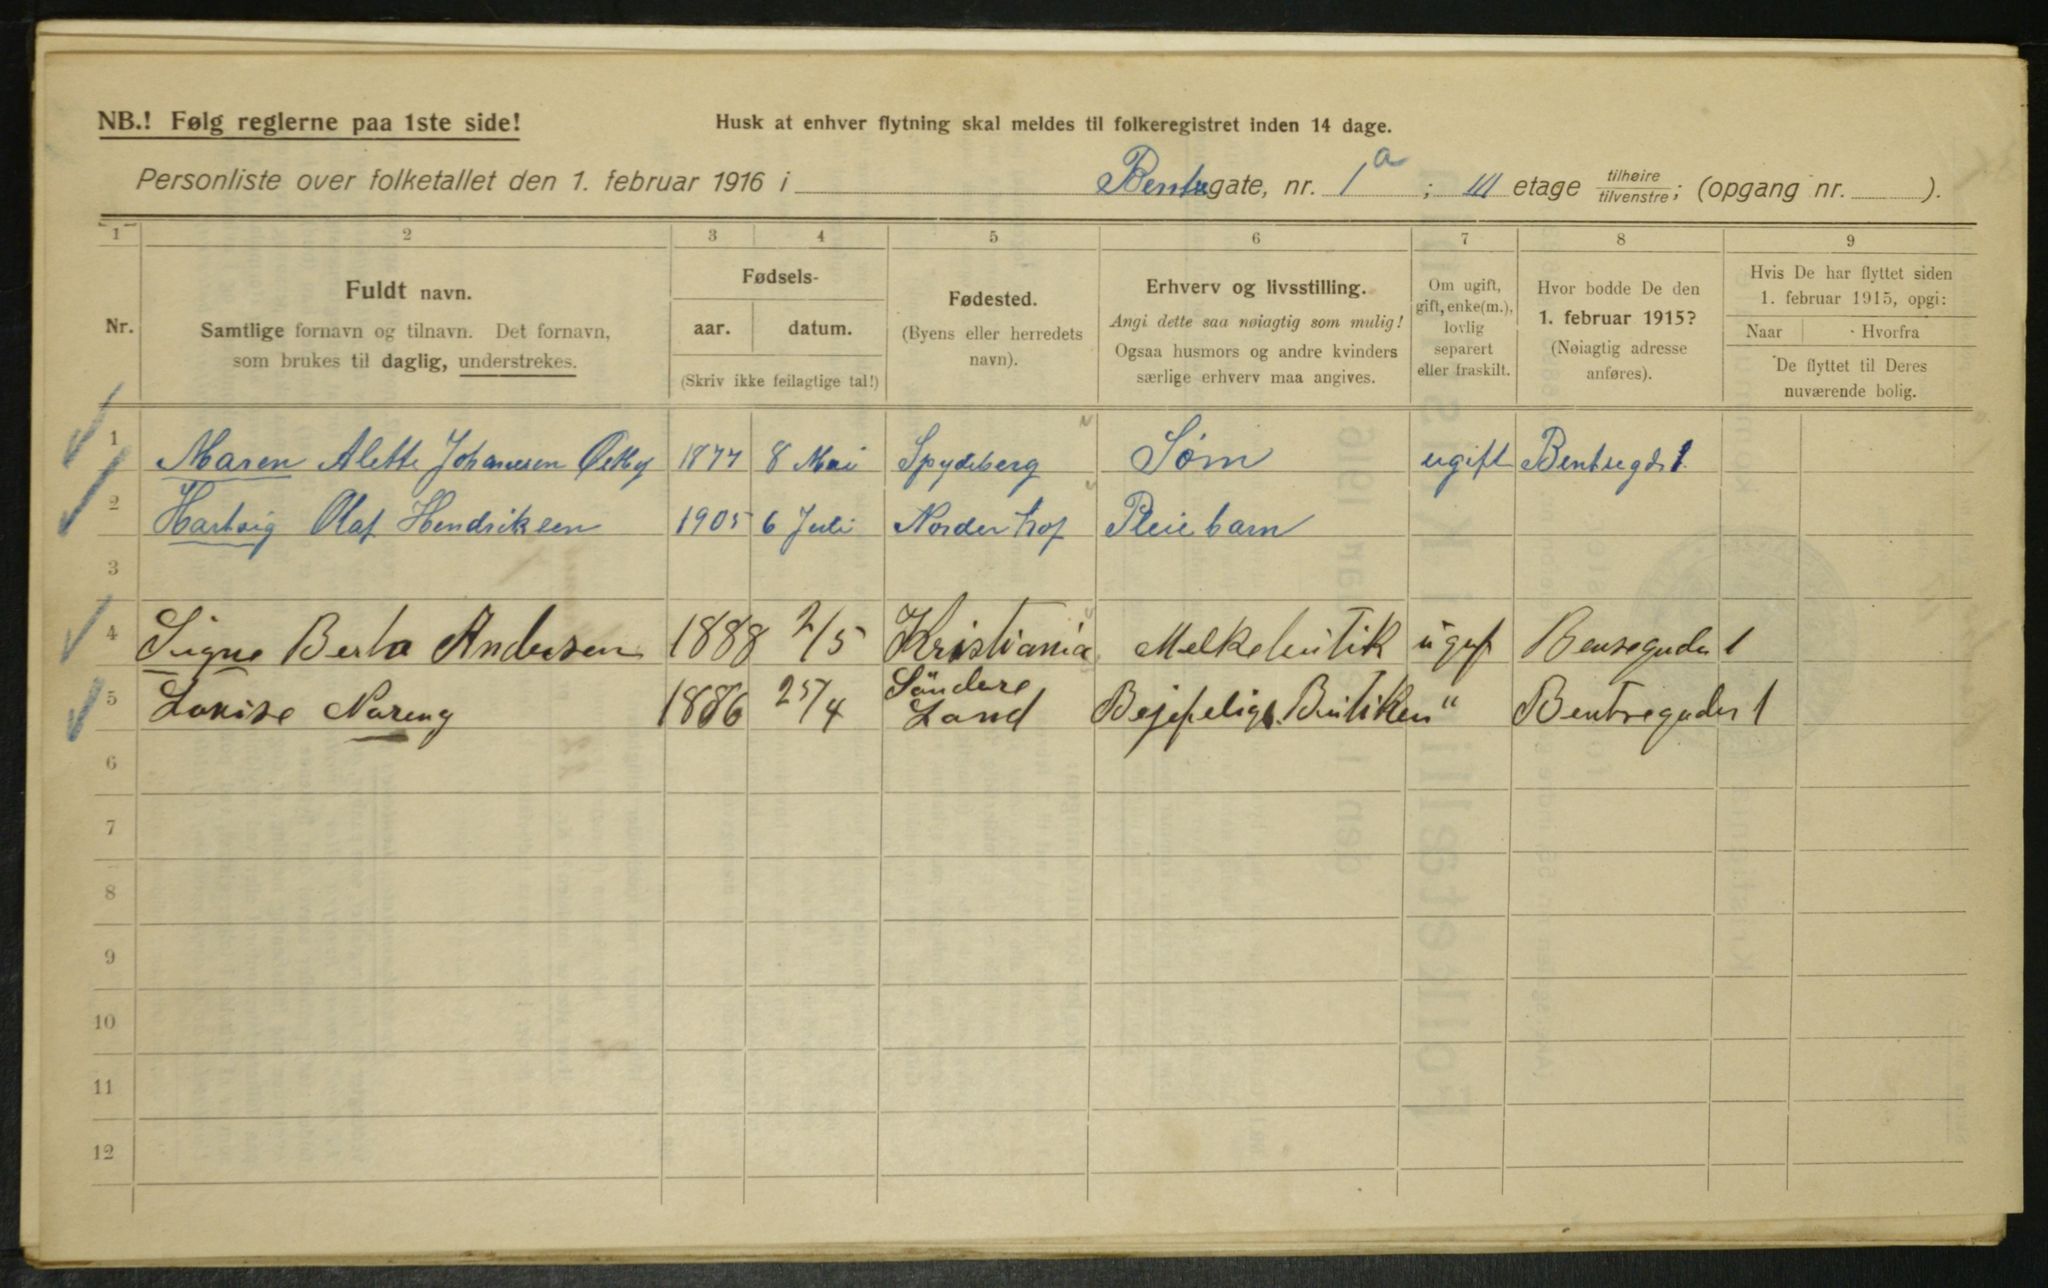 NB.! Følg reglerne paa 1ste side!
Husk at enhver flytning skal meldes til folkeregistret inden 14 dage.
Personliste over folketallet den 1. februar 1916 i Bentsegate, nr. 1a; III etage tilhøire tilvenstre; (opgang nr. ).
1 2 3 4 5 6 7 8 9
Nr.
Fuldt navn.
Samtlige fornavn og tilnavn. Det fornavn,
som brukes til daglig, understrekes.
Fødsels-
aar. datum.
(Skriv ikke feilagtige tal!)
Fødested.
(Byens eller herredets
navn).
Erhverv og livsstilling.
Angi dette saa nøiagtig som mulig!
Ogsaa husmors og andre kvinders
særlige erhverv maa angives.
Om ugift,
gift, enke(m.),
lovlig
separert
eller fraskilt.
Hvor bodde De den
1. februar 1915?
(Nøiagtig adresse
anføres).
Hvis De har flyttet siden
1. februar 1915, opgi:
Naar Hvorfra
De flyttet til Deres
nuværende bolig.
1 Maren Alette Johannesen 1877 8 Mai Spydeberg Søm ugift Bentsegd 1
2 Hartvig Olaf Hendriksen 1905 6 Juli Norderhof Pleiebarn
3
4 Signe Berta Andersen 1888 2/5 Kristiania Melkebutik ugift Bensegaden 1
5 Lovise Nareng 1886 25/4 Söndere Land Butiken " Bentsegaden 1
6
7
8
9
10
11
12